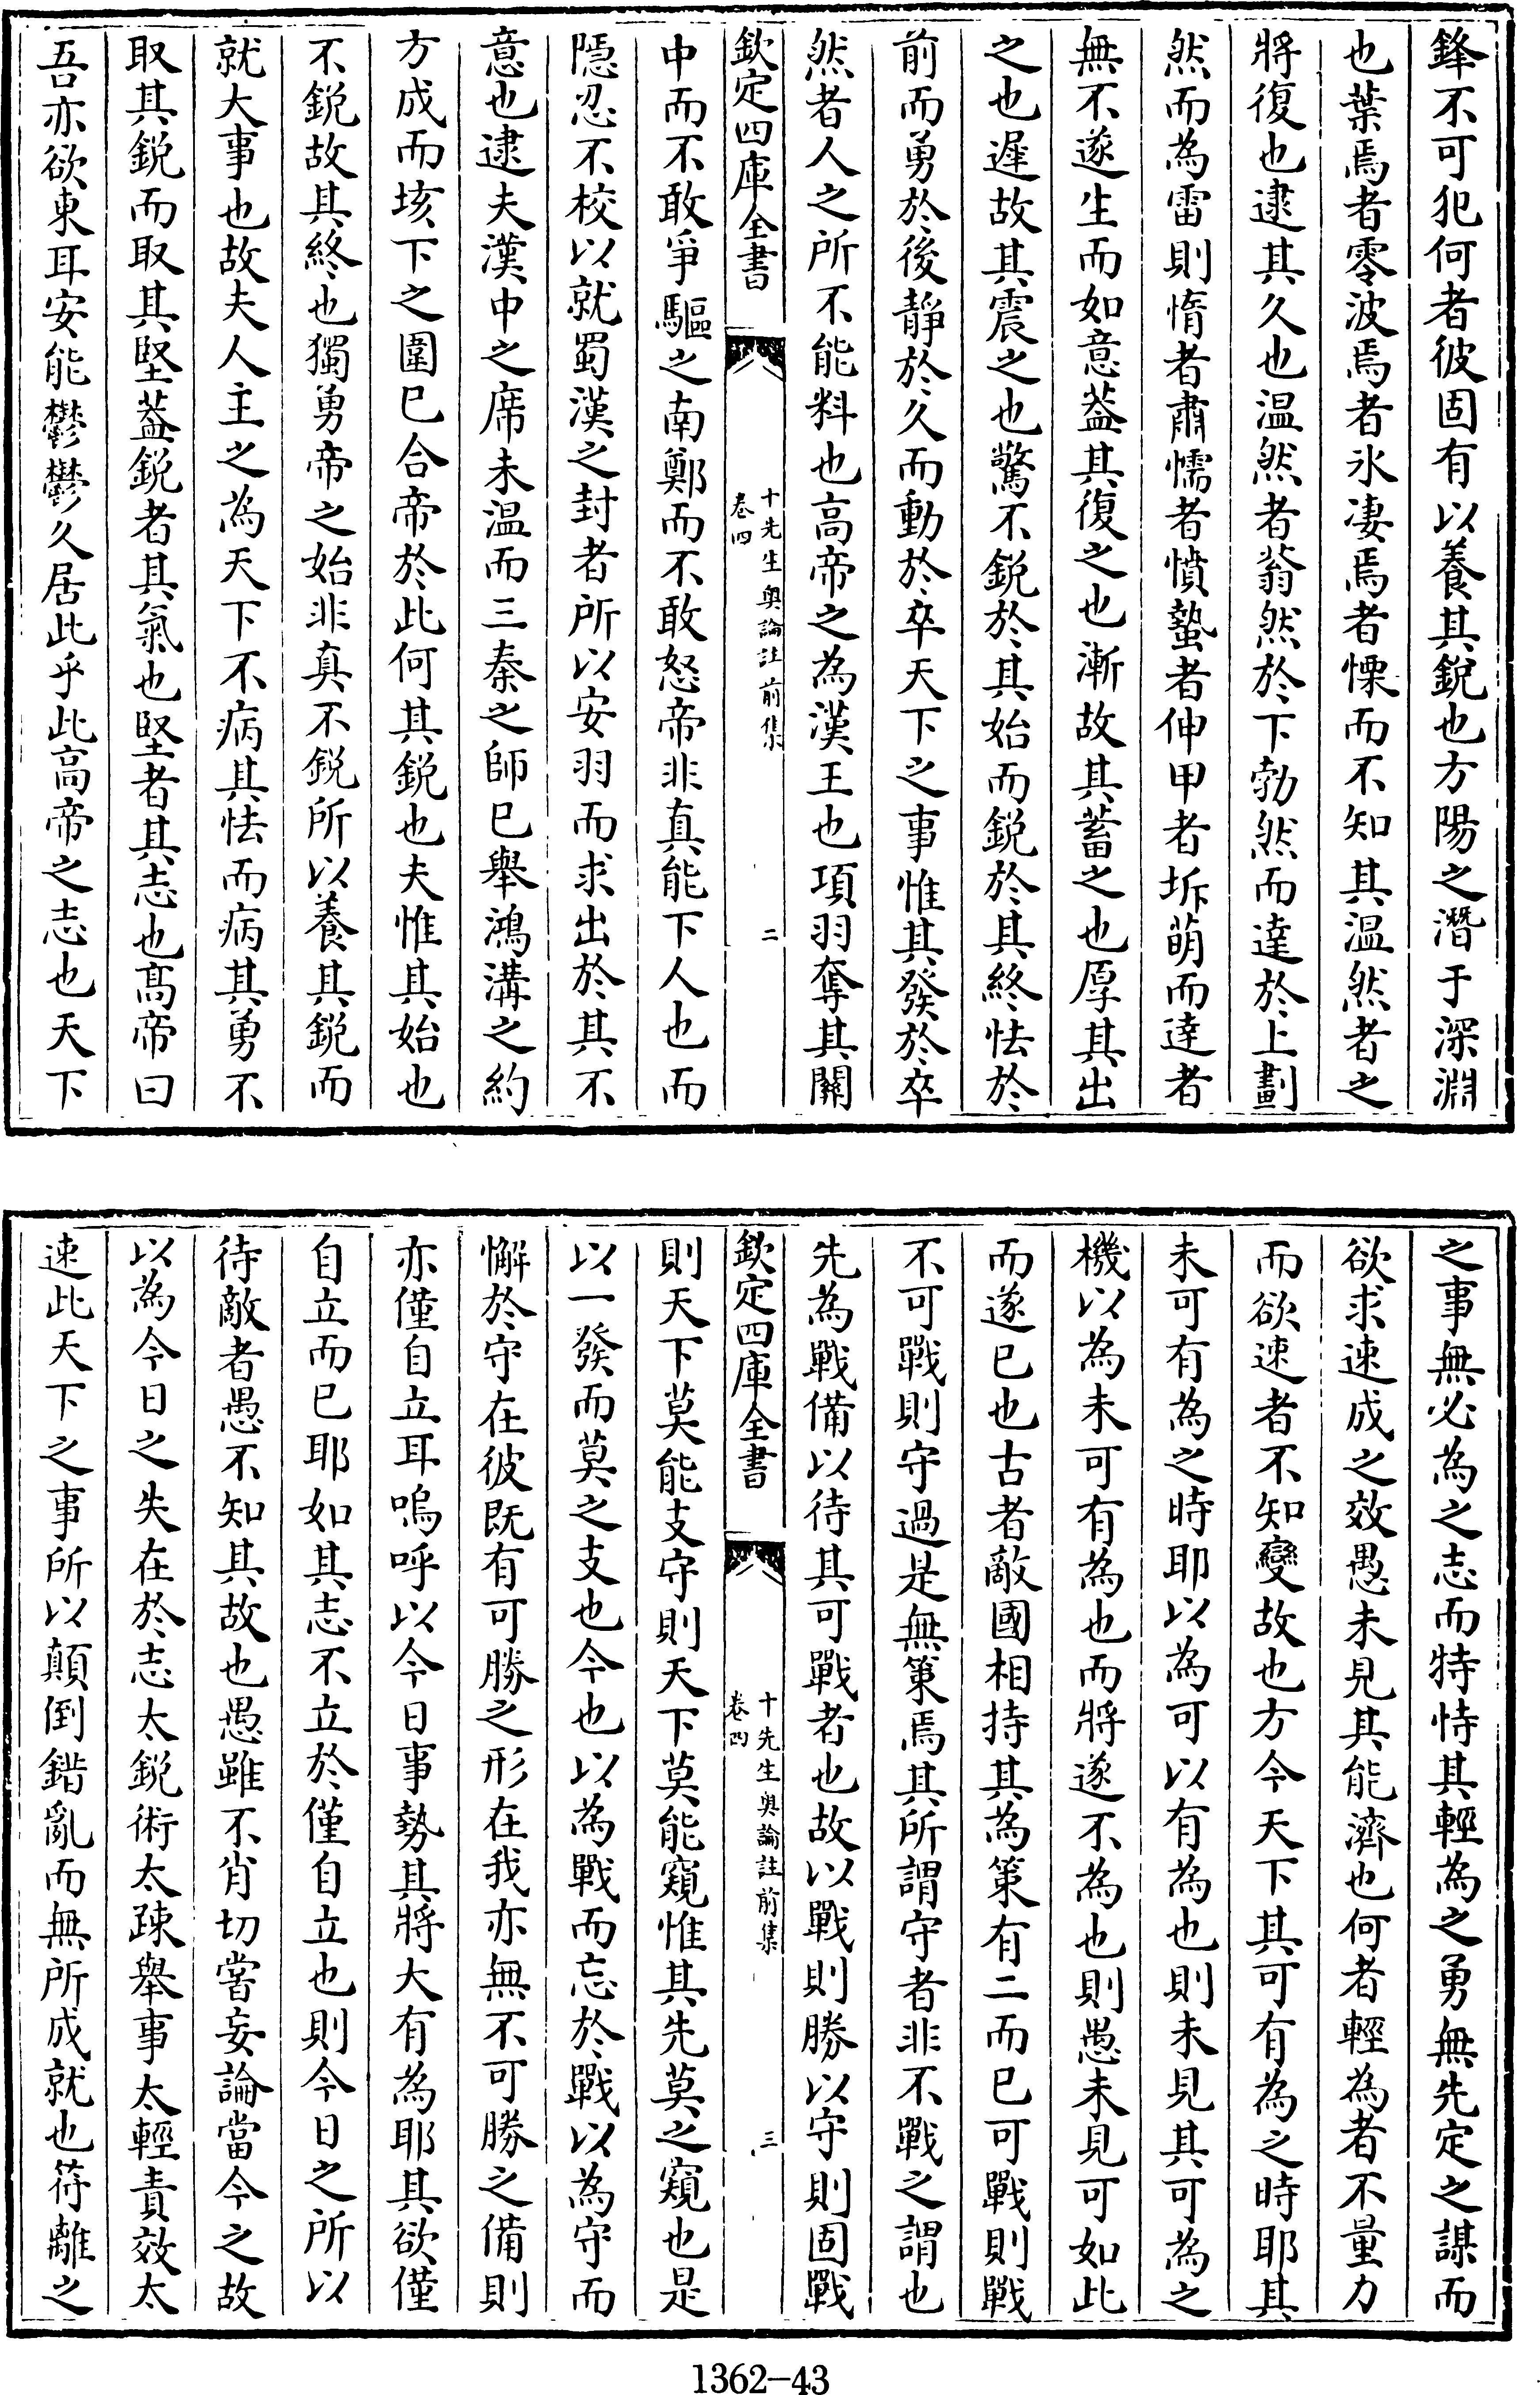 鋒不可犯何者彼固有以養其銳也方陽之潛于深淵
也葉焉者零波焉者氷凄焉者慄而不知其温然者之
將復也逮其久也温然者蓊然於下勃然而達於上劃
然而為雷則惰者肅懦者憤蟄者伸甲者坼萌而達者
無不遂生而如意葢其復之也漸故其蓄之也厚其出
之也遲故其震之也驚不銳於其始而銳於其終怯於
前而勇於後靜於久而動於卒天下之事惟其發於卒
然者人之所不能料也高帝之為漢王也項羽奪其關
欽定四庫全書
十先生奥論註前集
卷四
二
中而不敢爭驅之南鄭而不敢怒帝非真能下人也而
隠忍不校以就蜀漢之封者所以安羽而求出於其不
意也逮夫漢中之席未温而三秦之師已舉鴻溝之約
方成而垓下之圍已合帝於此何其銳也夫惟其始也
不銳故其終也獨勇帝之始非真不銳所以養其銳而
就大事也故夫人主之為天下不病其怯而病其勇不
取其銳而取其堅葢銳者其氣也堅者其志也髙帝曰
吾亦欲東耳安能鬱鬱久居此乎此高帝之志也天下
之事無必為之志而特恃其輕為之勇無先定之謀而
欲求速成之效愚未見其能濟也何者輕為者不量力
而欲速者不知變故也方今天下其可有為之時耶其
未可有為之時耶以為可以有為也則未見其可為之
機以為未可有為也而將遂不為也則愚未見可如此
而遂已也古者敵國相持其為策有二而已可戰則戰
不可戰則守過是無策焉其所謂守者非不戰之謂也
先為戰備以待其可戰者也故以戰則勝以守則固戰
欽定四庫全書
十先生奥論註前集
卷四
三
則天下莫能支守則天下莫能窺惟其先莫之窺也是
以一發而莫之支也今也以為戰而忘於戰以為守而
懈於守在彼既有可勝之形在我亦無不可勝之備則
亦僅自立耳嗚呼以今日事勢其將大有為耶其欲僅
自立而已耶如其志不立於僅自立也則今日之所以
待敵者愚不知其故也愚雖不肖切嘗妄論當今之故
以為今日之失在於志太銳術太疎舉事太輕責效太
速此天下之事所以顛倒錯亂而無所成就也符離之
1362-43